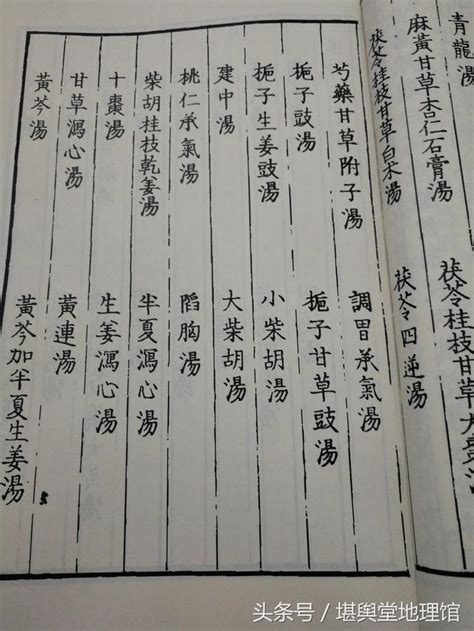 青龍湯
麻黃甘草杏仁石膏湯
茯苓桂枝甘草大棗湯
茯苓桂枝甘草白术湯
茯苓四逆湯
芍藥甘草附子湯
調胃承氣湯
梔子豉湯
梔子甘草豉湯
梔子生姜豉湯
小柴胡湯
建中湯
大柴胡湯
桃仁承氣湯
陷胸湯
柴胡桂枝乾姜湯
半夏瀉心湯
十棗湯
生姜瀉心湯
甘草瀉心湯
黃連湯
黃芩湯
黃芩加半夏生姜湯
头条号/堪舆堂地理馆